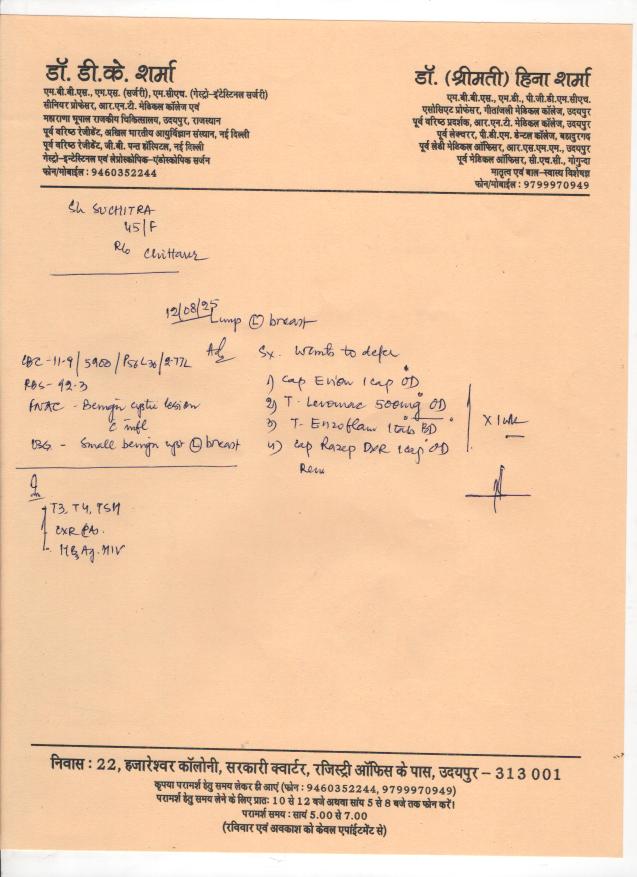 डॉ. डी.के. शर्मा
एम.बी.बी.एस., एम.एस. (सर्जरी), एम.सीएच. (गेस्ट्रो-इंटेस्टिनल सर्जरी)
सीनियर प्रोफेसर, आर.एन.टी. मेडिकल कॉलेज एवं
महाराणा भूपाल राजकीय चिकित्सालय, उदयपुर, राजस्थान
पूर्व वरिष्ठ रेजीडेंट, अखिल भारतीय आयुर्विज्ञान संस्थान, नई दिल्ली
पूर्व वरिष्ठ रेजीडेंट, जी.बी. पन्त हॉस्पिटल, नई दिल्ली
गेस्ट्रो-इन्टेस्टिनल एवं लेप्रोस्कोपिक-एंडोस्कोपिक सर्जन
फोन/मोबाईल : 9460352244
डॉ. (श्रीमती) हिना शर्मा
एम.बी.बी.एस., एम.डी., पी.जी.डी.एम.सीएच.
एसोसिएट प्रोफेसर, गीतांजली मेडिकल कॉलेज, उदयपुर
पूर्व वरिष्ठ प्रदर्शक, आर.एन.टी. मेडिकल कॉलेज, उदयपुर
पूर्व लेक्चरर, पी.डी.एम. डेन्टल कॉलेज, बहादुरगढ़
पूर्व लेडी मेडिकल ऑफिसर, आर.एस.एम.एम., उदयपुर
पूर्व मेडिकल ऑफिसर, सी.एच.सी., गोगुन्दा
मातृत्व एवं बाल-स्वास्थ्य विशेषज्ञ
फोन/मोबाईल : 9799970949
SUCHITRA
45/F
R/o
12/08/25
Lump (L) breast
Adv Sx. Wants to defer
CBC - 11.9/5900/P56L36/2.77L
RBS - 92.3
FNAC - Benign cystic lesion
c infl
USG - Small benign cyst (L) breast
1) Cap Evion 1 cap OD
2) T. Levomac 500mg OD
3) T. Enzoflam 1 tab BD
4) Cap Razep DXR 1 cap OD
X 1 wk
Rev
T3, T4, TSH
CXR PA.
HBsAg. HIV
निवास : 22, हजारेश्वर कॉलोनी, सरकारी क्वार्टर, रजिस्ट्री ऑफिस के पास, उदयपुर – 313 001
कृपया परामर्श हेतु समय लेकर ही आएं (फोन : 9460352244, 9799970949)
परामर्श हेतु समय लेने के लिए प्रातः 10 से 12 बजे अथवा सांय 5 से 8 बजे तक फोन करें।
परामर्श समय : सायं 5.00 से 7.00
(रविवार एवं अवकाश को केवल एपांईटमेंट से)